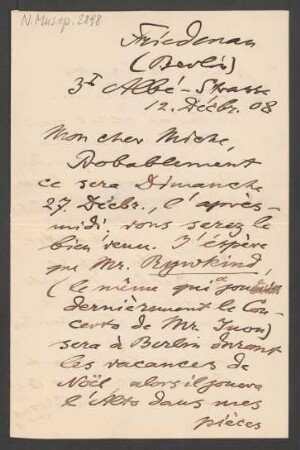 N.Mus.ep. 2898
Friedenau
(Berlin)
3I Albé-Strasse
12. Décbr. 08
Mon cher Miche,
Probablement
ce sera Dimanche
27. Décbr., l'après-
midi, vous serez le
bien venu. J'éspère
que Mr. Rywkind,
(le même qui a joué
dernièrement le Con-
certo de Mr. Juon)
sera à Berlin durant
les vacances de
Noël, alors il jouera
l'Alto dans mes
pièces